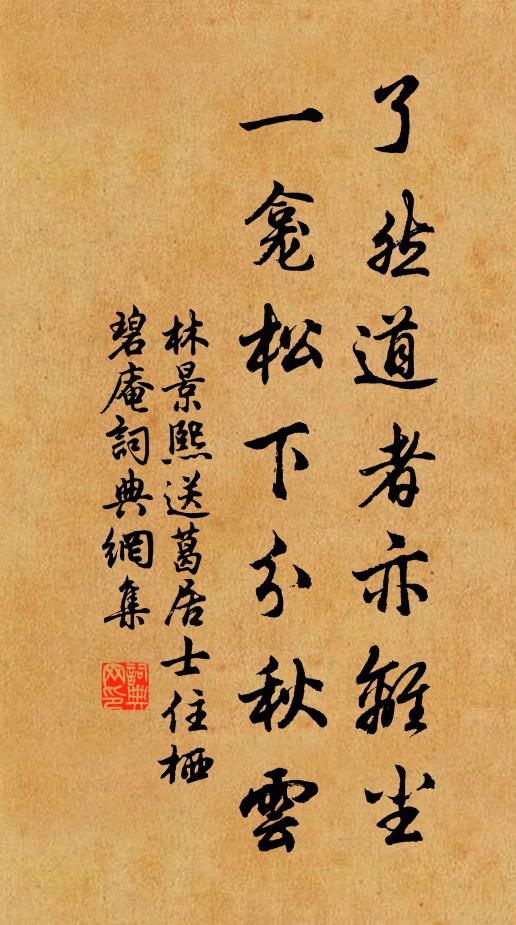 了然道者亦離尘
一龛松下分秋雲
林景熙送葛居士住栖
碧庵詞典網集
詞典
网印